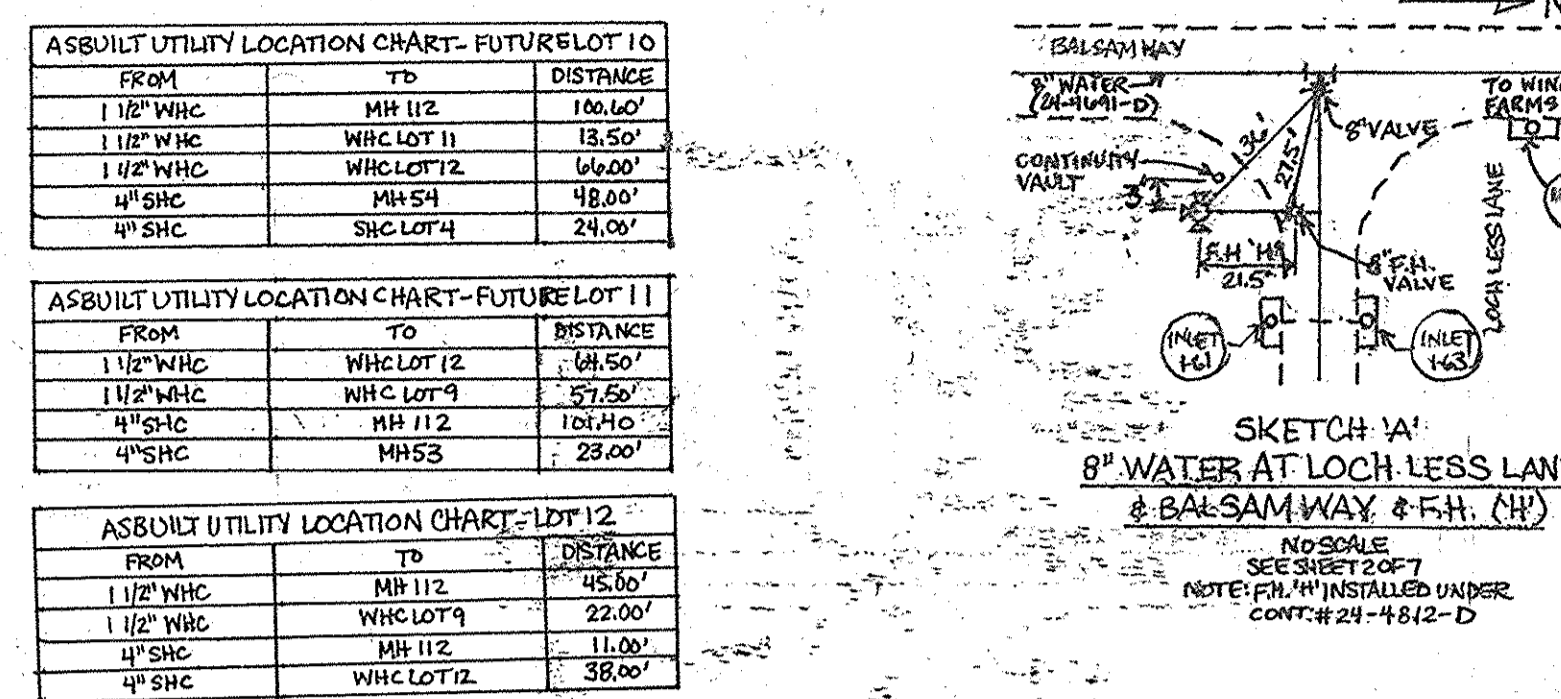 ASBUILT UTILITY LOCATION CHART - FUTURE LOT 10
FROM TO DISTANCE
1 1/2" WHC MH 112 100.60'
1 1/2" WHC WHC LOT 11 13.50'
1 1/2" WHC WHC LOT 12 66.00'
4" SHC MH 54 48.00'
4" SHC SHC LOT 4 24.00'
ASBUILT UTILITY LOCATION CHART - FUTURE LOT 11
FROM TO DISTANCE
1 1/2" WHC WHC LOT 12 64.50'
1 1/2" WHC WHC LOT 9 57.50'
4" SHC MH 112 101.40
4" SHC MH 53 23.00'
ASBUILT UTILITY LOCATION CHART - LOT 12
FROM TO DISTANCE
1 1/2" WHC MH 112 45.00'
1 1/2" WHC WHC LOT 9 22.00'
4" SHC MH 112 11.00'
4" SHC WHC LOT 12 38.00'
BALSAM WAY
8" WATER
(24-4691-D)
TO WIN
FARMS
8" VALVE
CONTINUITY
VAULT
3'
136'
27.5'
F.H 'H'
21.5'
8" F.H.
VALVE
LOCH LESS LANE
INLET
I-61
INLET
I-63
SKETCH 'A'
8" WATER AT LOCH LESS LAN
& BALSAM WAY & F.H. ('H')
NO SCALE
SEE SHEET 2 OF 7
NOTE: F.H. 'H' INSTALLED UNDER
CONT. # 24-4812-D